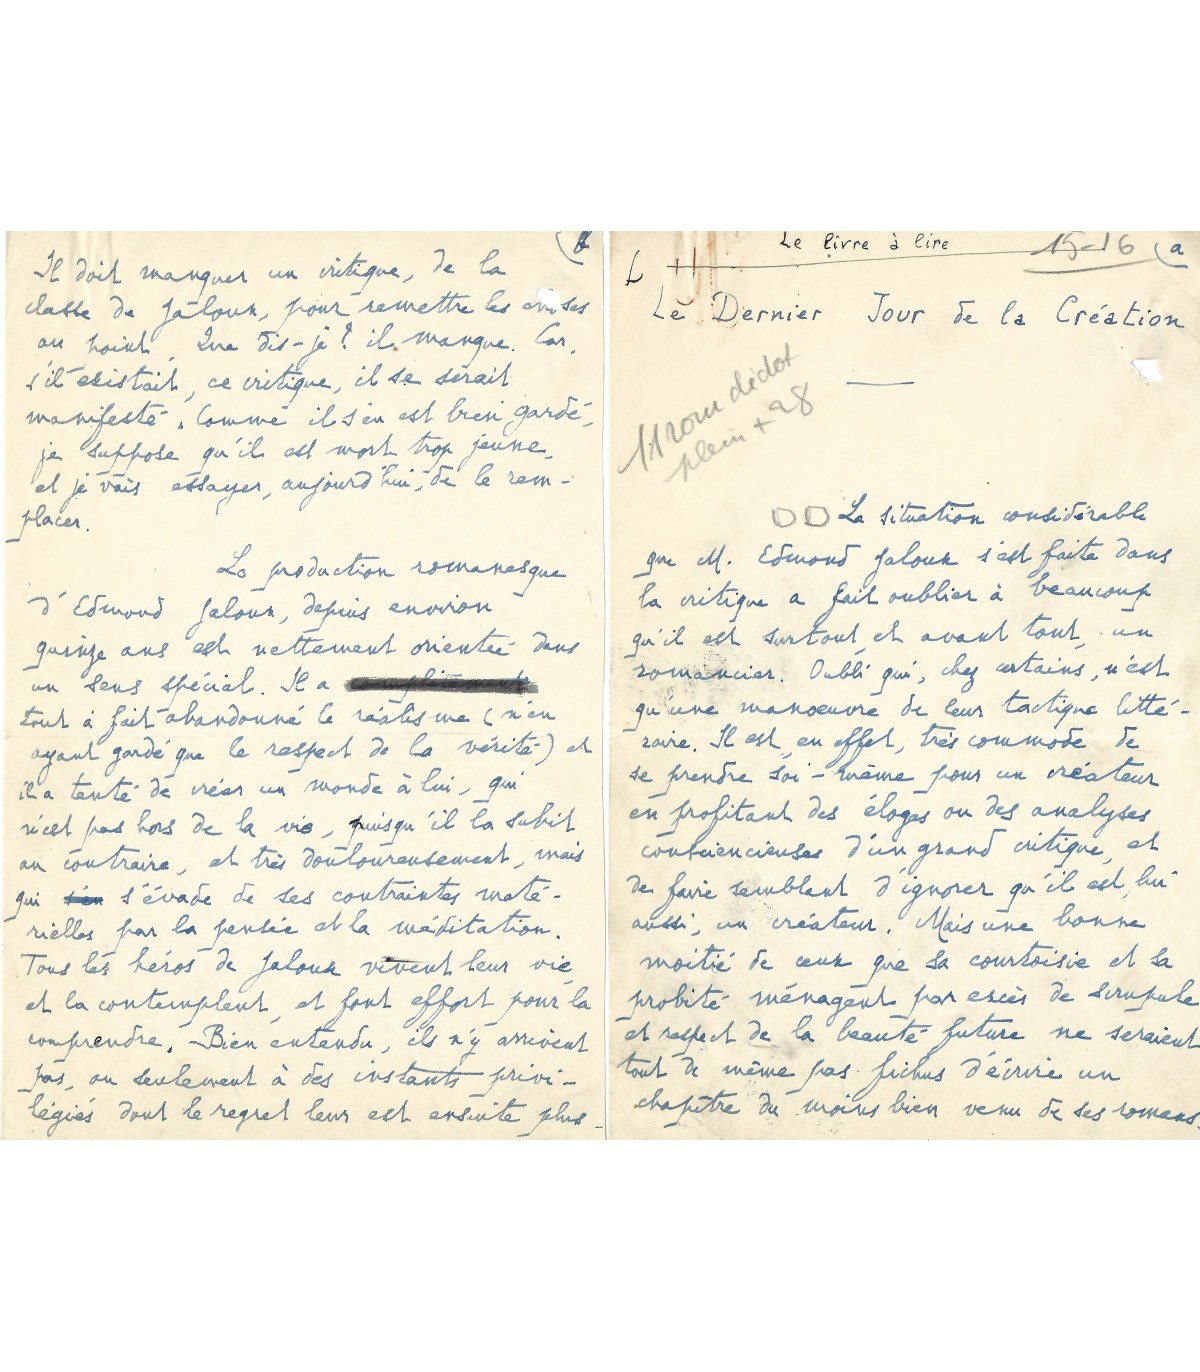 Le livre à lire
15-16 (a
Le Dernier Jour de la Création
11 rom didot
plein + 28
La situation considérable
que M. Edmond Jaloux s'est faite dans
la critique a fait oublier à beaucoup
qu'il est surtout, et avant tout, un
romancier. Oubli qui, chez certains, n'est
qu'une manœuvre de leur tactique litté-
raire. Il est, en effet, très commode de
se prendre soi-même pour un créateur
en profitant des éloges ou des analyses
consciencieuses d'un grand critique, et
de faire semblant d'ignorer qu'il est, lui
aussi, un créateur. Mais une bonne
moitié de ceux que sa courtoisie et sa
probité ménagent par excès de scrupule
et respect de la beauté future ne seraient
tout de même pas fichus d'écrire un
chapitre du moins bien venu de ses romans.
(b
Il doit manquer un critique, de la
classe de Jaloux, pour remettre les choses
au point. Que dis-je? il manque. Car,
s'il existait, ce critique, il se serait
manifesté. Comme il s'en est bien gardé,
je suppose qu'il est mort trop jeune,
et je vais essayer, aujourd'hui, de le rem-
placer.
La production romanesque
d'Edmond Jaloux, depuis environ
quinze ans est nettement orientée dans
un sens spécial. Il a complètement
tout à fait abandonné le réalisme (n'en
ayant gardé que le respect de la vérité) et
il a tenté de créer un monde à lui, qui
n'est pas hors de la vie, puisqu'il la subit
au contraire, et très douloureusement, mais
qui s'en s'évade de ses contraintes maté-
rielles par la pensée et la méditation.
Tous les héros de Jaloux vivent leur vie
et la contemplent, et font effort pour la
comprendre. Bien entendu, ils n'y arrivent
pas, ou seulement à des instants privi-
légiés dont le regret leur est ensuite plus